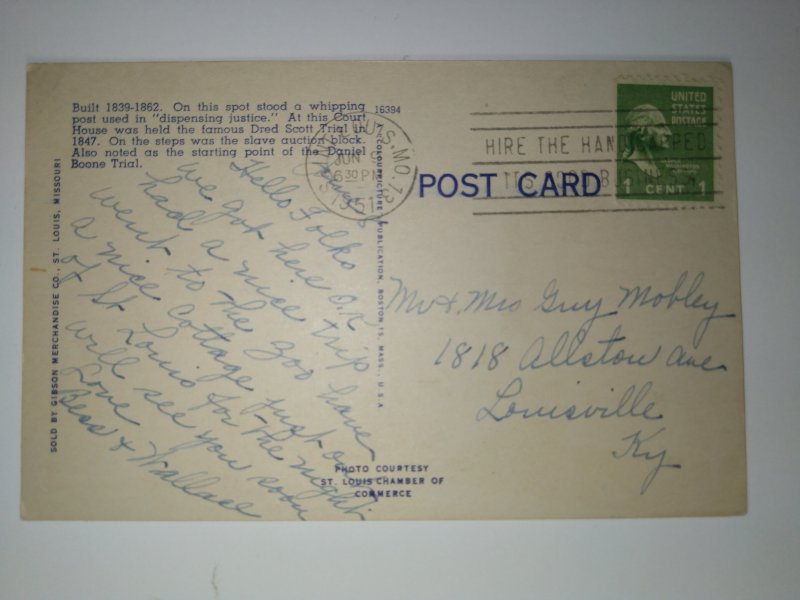 Built 1839-1862. On this spot stood a whipping
post used in "dispensing justice." At this Court
House was held the famous Dred Scott Trial in
1847. On the steps was the slave auction block.
Also noted as the starting point of the Daniel
Boone Trial.
16394
Hello Folks
we got here O.K.
had a nice trip
went to the zoo have
a nice cottage just out
of St Louis for the night
will see you soon
Love
Bess & Wallace
SOLD BY GIBSON MERCHANDISE CO., ST. LOUIS, MISSOURI
PUBLICATION, BOSTON 15, MASS., U.S.A.
PHOTO COURTESY
ST. LOUIS CHAMBER OF
COMMERCE
POST CARD
ST. LOUIS, MO.
JUN
630 PM
1951
HIRE THE HANDICAPPED
IT'S GOOD BUSINESS
UNITED
STATES
POSTAGE
1 CENT 1
Mr & Mrs Guy Mobley
1818 Allston Ave
Louisville
Ky